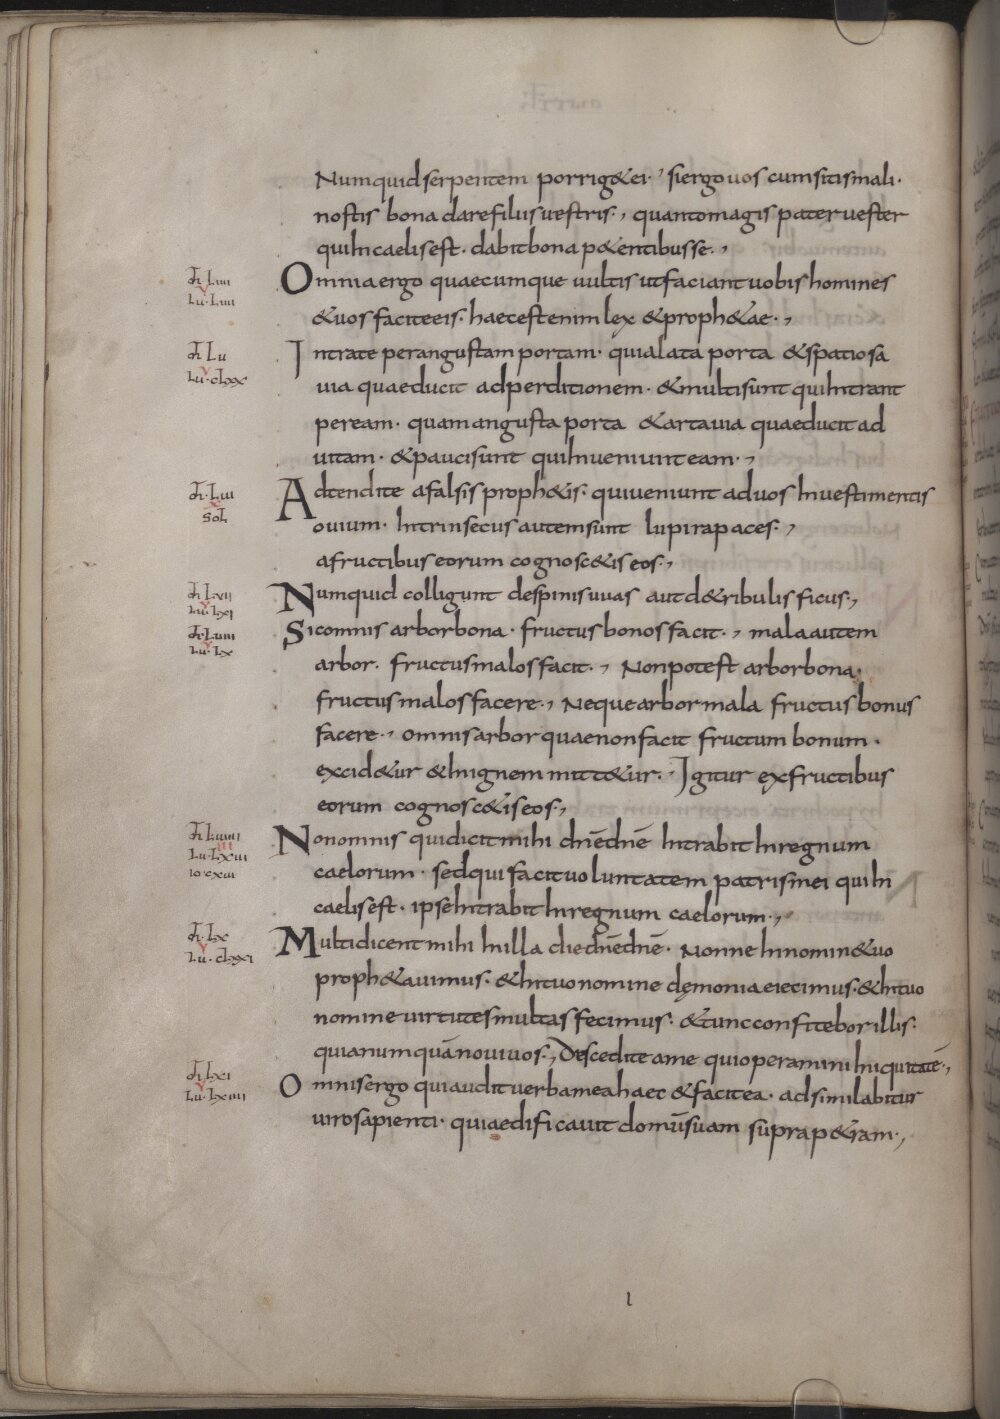 Numquid serpentem porrig&ei·, siergo uos cum sitis mali·
nostis bona dare filiis uestris·, quanto magis pater uester
qui In caelis est· dabit bona p&entibus se·,
Omnia ergo quaecumque uultis ut faciant uobis homines
&uos facite eis· haec est enim lex &proph&ae·,
Intrate per angustam portam· quia lata porta &spatiosa
uia quae ducit ad perditionem· &multi sunt qui Intrant
per eam· quam angusta porta &arta uia quae ducit ad
uitam· &pauci sunt qui Inueniunt eam·,
Adtendite a falsis proph&is· qui ueniunt ad uos In uestimentis
ouium· Intrinsecus autem sunt lupi rapaces·,
a fructibus eorum cognosc&is eos·,
Numquid colligunt de spinis uuas aut de tribulis ficus·,
Sic omnis arbor bona· fructus bonos facit·, mala autem
arbor· fructus malos facit·, Non potest arbor bona·
fructus malos facere·, Neque arbor mala fructus bonus
facere·, omnis arbor quae non facit fructum bonum·
excid&ur &In ignem mitt&ur·, Igitur ex fructibus
eorum cognosc&is eos·,
Non omnis qui dicit mihi dnē dnē Intrabit In regnum
caelorum· sed qui facit uoluntatem patris mei qui In
caelis est· ipse Intrabit In regnum caelorum·,
Multi dicent mihi In illa die dnē dnē· Nonne In nomin&uo
proph&auimus· &In tuo nomine dęmonia eiecimus· &In tuo
nomine uirtutes multas fecimus· &tunc confitebor illis·
quia numquā noui uos·, Discedite a me qui operamini Iniquitatē·,
Omnis ergo qui audit uerba mea haec &facit ea· adsimilabitur
uiro sapienti· qui aedificauit domū suam supra p&ram·,